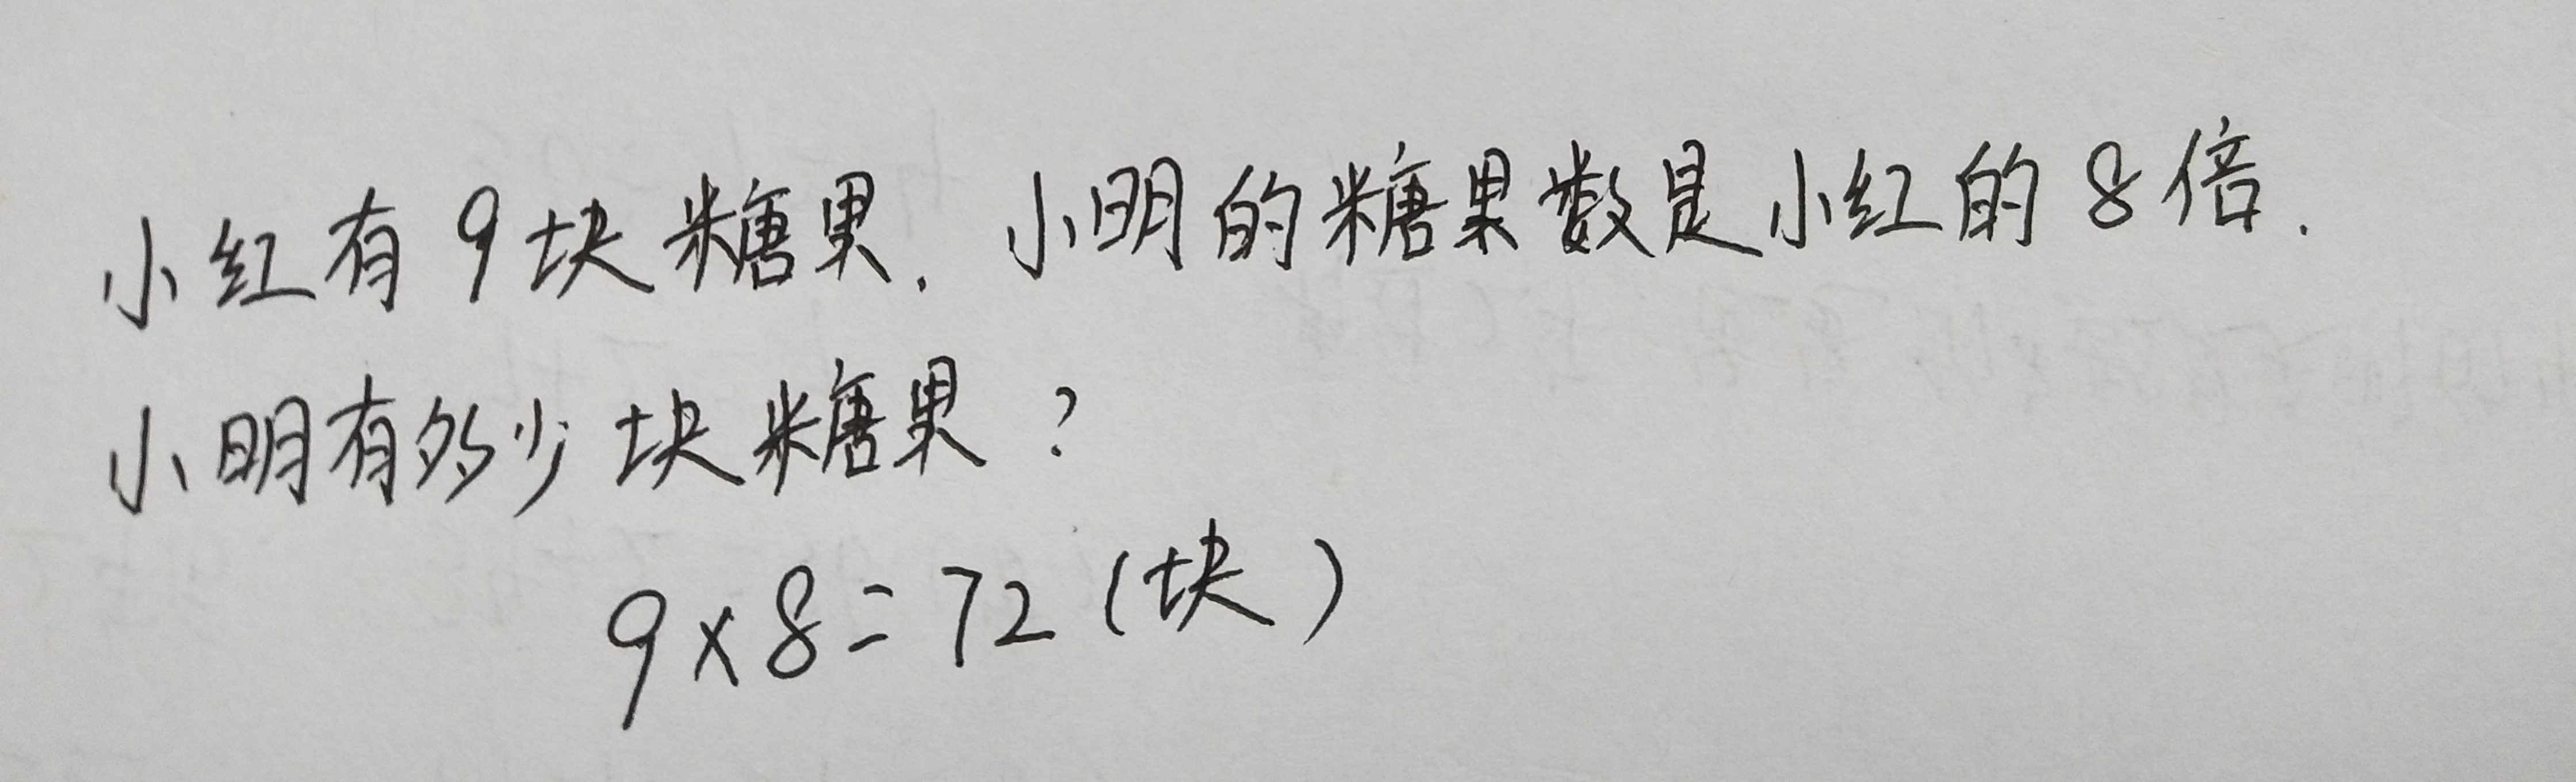 小红有9块糖果. 小明的糖果数是小红的8倍.
小明有多少块糖果?
9×8=72(块)